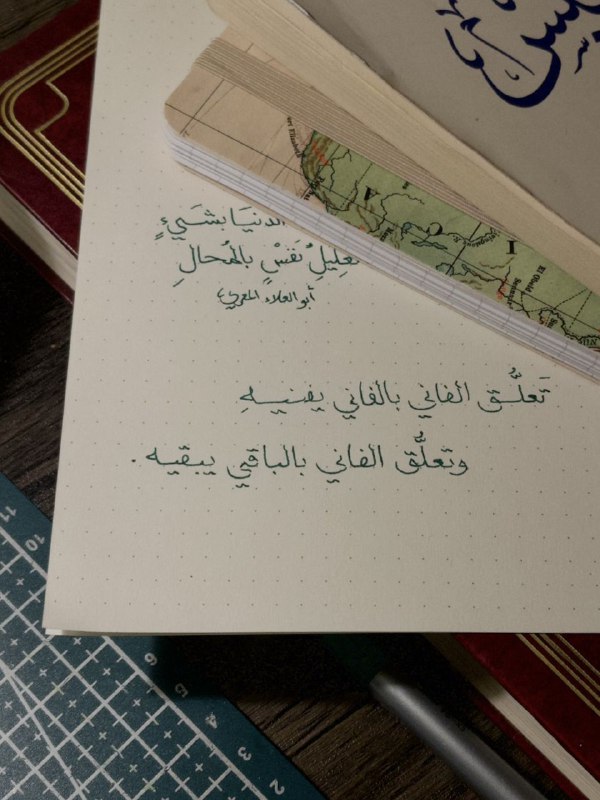 الدنيَا بشَيءٍ
تعليلِ نَفسٍ بالمُحالِ
أبو العلاء المعري
تَعلُّق الفاني بالفاني يفنيهِ
وتعلُّق الفاني بالباقي يبقيه .
11
10
6
5
4
3
2